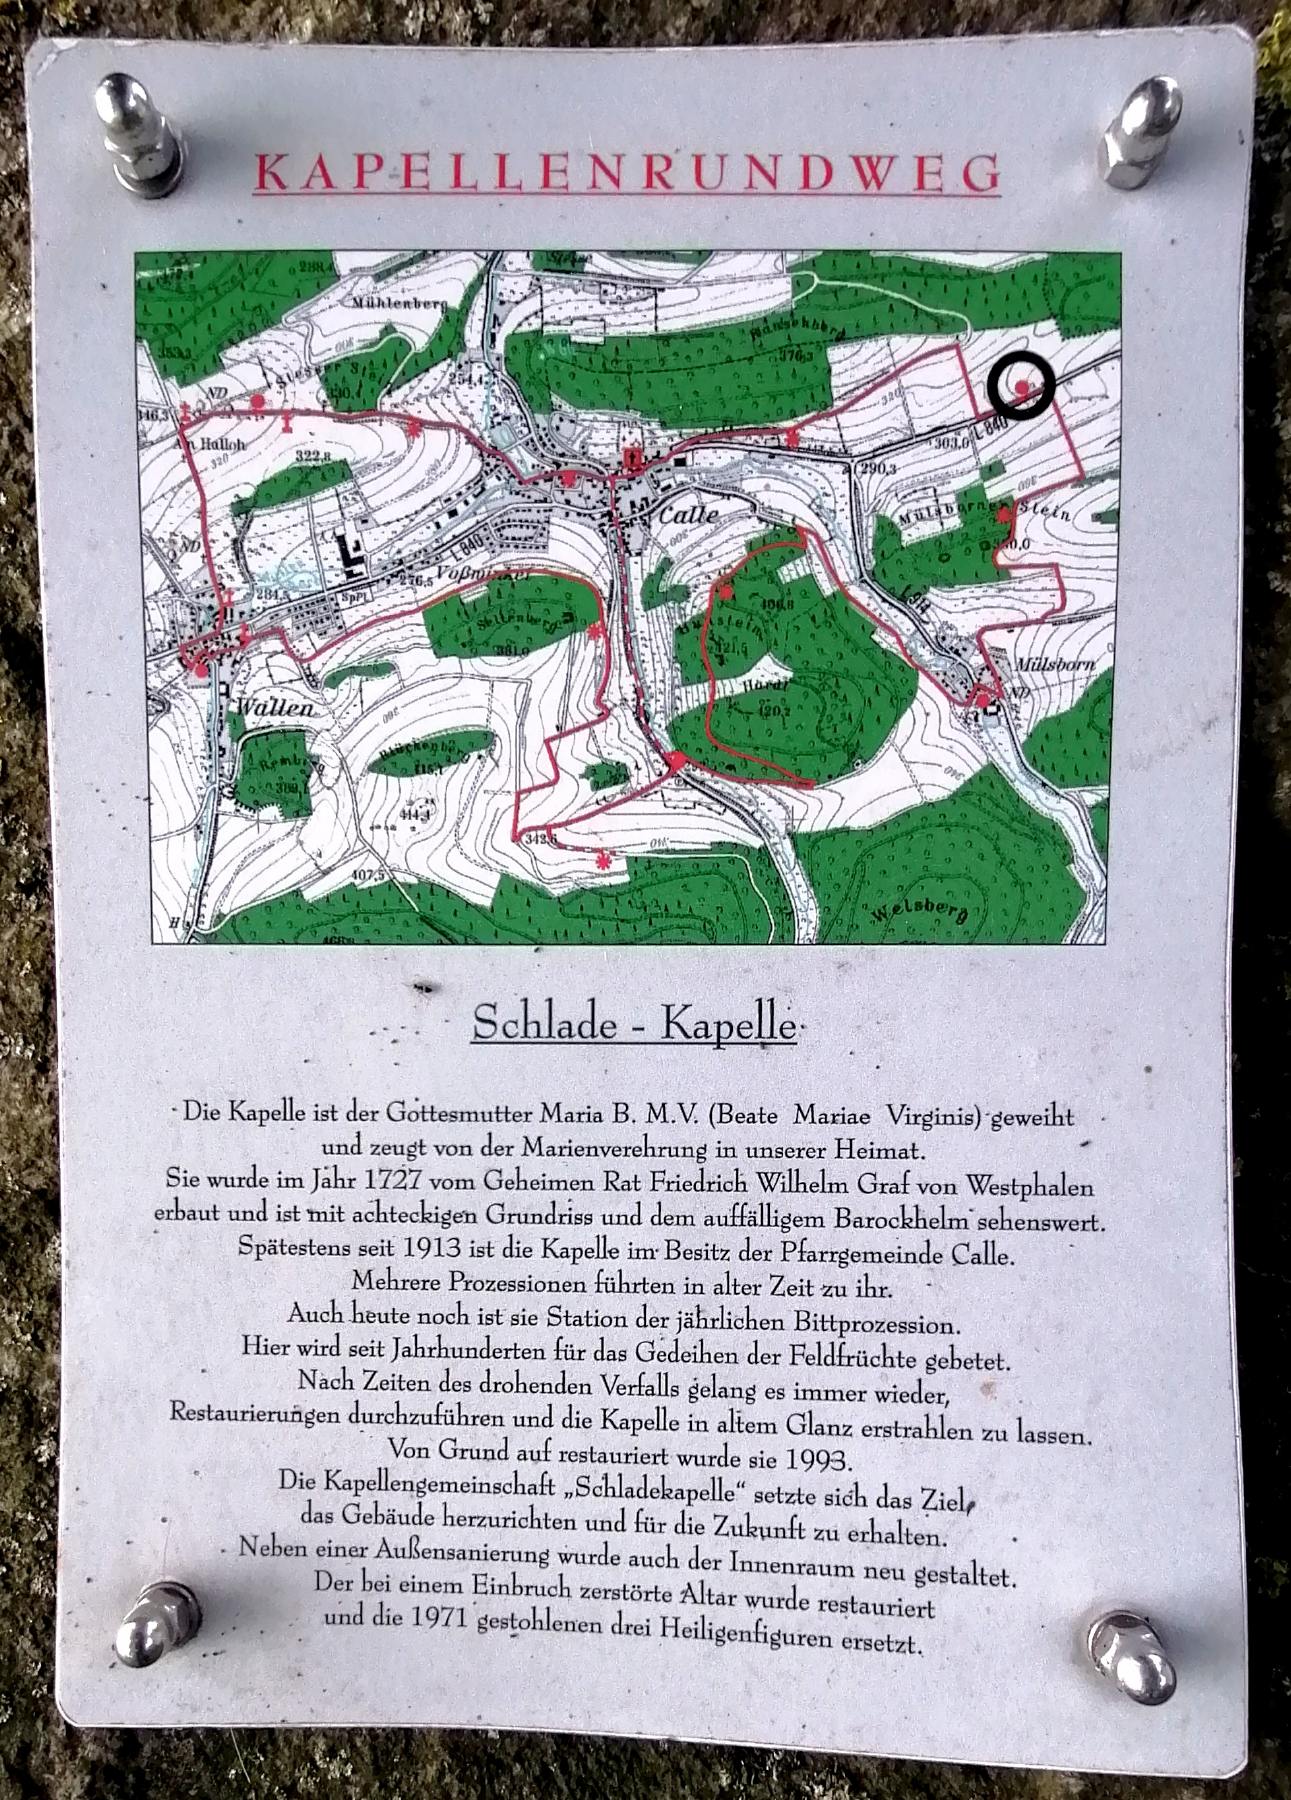 KAPELLENRUNDWEG
288,4
Mühlenberg
353,3
300
Hansenberg
376,3
254,4
ND
330,4
320
346,3
Am Halloh
303,0
L 840
322,8
320
290,3
Calle
300
Mülsborner Stein
ND
L 840
300
276,5
Voßwinkel
284,5
SpPl.
Sellenberg
381,0
406,8
421,5
Mülsborn
ND
Wallen
Hardt
420,2
360
Blückenberg
415,1
340
414,1
342,6
340
407,5
Welsberg
H
Schlade - Kapelle
Die Kapelle ist der Gottesmutter Maria B. M.V. (Beate Mariae Virginis) geweiht
und zeugt von der Marienverehrung in unserer Heimat.
Sie wurde im Jahr 1727 vom Geheimen Rat Friedrich Wilhelm Graf von Westphalen
erbaut und ist mit achteckigen Grundriss und dem auffälligem Barockhelm sehenswert.
Spätestens seit 1913 ist die Kapelle im Besitz der Pfarrgemeinde Calle.
Mehrere Prozessionen führten in alter Zeit zu ihr.
Auch heute noch ist sie Station der jährlichen Bittprozession.
Hier wird seit Jahrhunderten für das Gedeihen der Feldfrüchte gebetet.
Nach Zeiten des drohenden Verfalls gelang es immer wieder,
Restaurierungen durchzuführen und die Kapelle in altem Glanz erstrahlen zu lassen.
Von Grund auf restauriert wurde sie 1993.
Die Kapellengemeinschaft „Schladekapelle“ setzte sich das Ziel,
das Gebäude herzurichten und für die Zukunft zu erhalten.
Neben einer Außensanierung wurde auch der Innenraum neu gestaltet.
Der bei einem Einbruch zerstörte Altar wurde restauriert
und die 1971 gestohlenen drei Heiligenfiguren ersetzt.